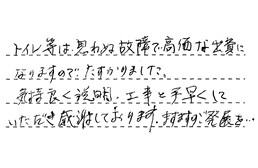 トイレ等は思わぬ故障で高価な出費に
なりますので、たすかりました。
気持良く説明、工事と手早くして
いただき感謝しております。ますますご発展を…